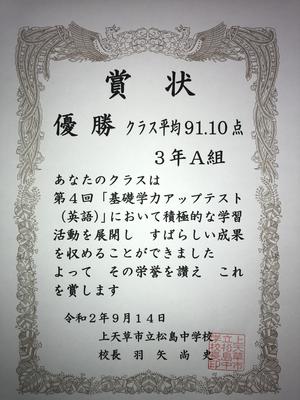 賞状
優勝 クラス平均91.10点
3年A組
あなたのクラスは
第4回「基礎学力アップテスト
(英語)」において積極的な学習
活動を展開し すばらしい成果
を収めることができました
よって その栄誉を讃え これ
を賞します
令和2年9月14日
上天草市立松島中学校
校長 羽矢尚史